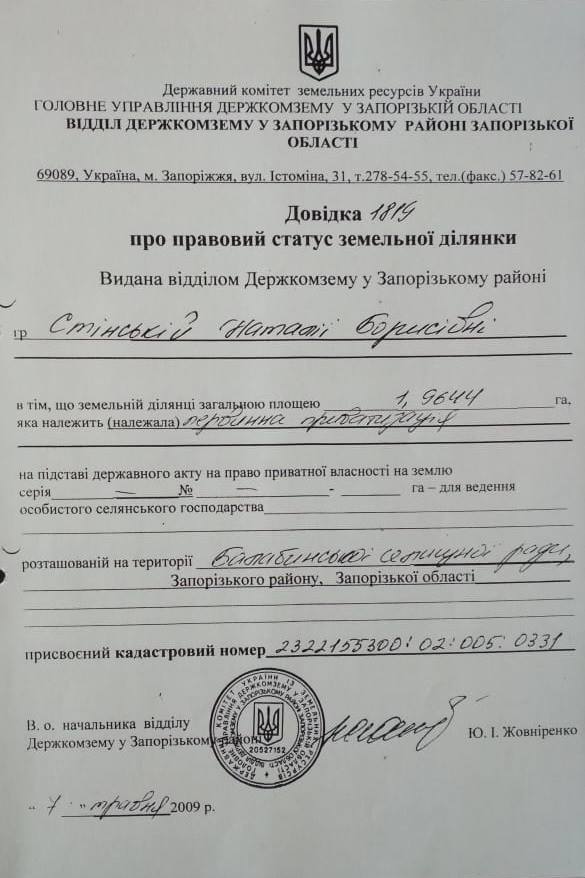 Державний комітет земельних ресурсів України
ГОЛОВНЕ УПРАВЛІННЯ ДЕРЖКОМЗЕМУ У ЗАПОРІЗЬКІЙ ОБЛАСТІ
ВІДДІЛ ДЕРЖКОМЗЕМУ У ЗАПОРІЗЬКОМУ РАЙОНІ ЗАПОРІЗЬКОЇ
ОБЛАСТІ
69089, Україна, м. Запоріжжя, вул. Істоміна, 31, т.278-54-55, тел.(факс.) 57-82-61
Довідка 1819
про правовий статус земельної ділянки
Видана відділом Держкомзему у Запорізькому районі
гр Стінській Наталії Борисівні
в тім, що земельній ділянці загальною площею 1,9644 га,
яка належить (належала) первинна приватизація
на підставі державного акту на право приватної власності на землю
серія — № — - га – для ведення
особистого селянського господарства
розташованій на території Балабинської селищної ради,
Запорізького району, Запорізької області
присвоєний кадастровий номер 2322155300:02:005:0331
В. о. начальника відділу
Держкомзему у Запорізькому районі Ю. І. Жовніренко
20527152
" 7 " травня 2009 р.